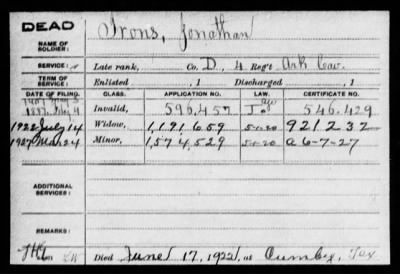 DEAD
NAME OF SOLDIER: Irons, Jonathan
SERVICE: Late rank, Co. D, 4 Reg't Ark Cav.
TERM OF SERVICE: Enlisted , 1 Discharged , 1
DATE OF FILING. CLASS. APPLICATION NO. LAW. CERTIFICATE NO.
Invalid, 596,457 546.429
1922 July 14 Widow, 1,191,659 5-1-20 921232
1927 Mar 24 Minor, 1,574,529 5-1-20 a 6-7-27
ADDITIONAL SERVICES:
REMARKS:
Died June 17, 1922, at Cumby, Tex